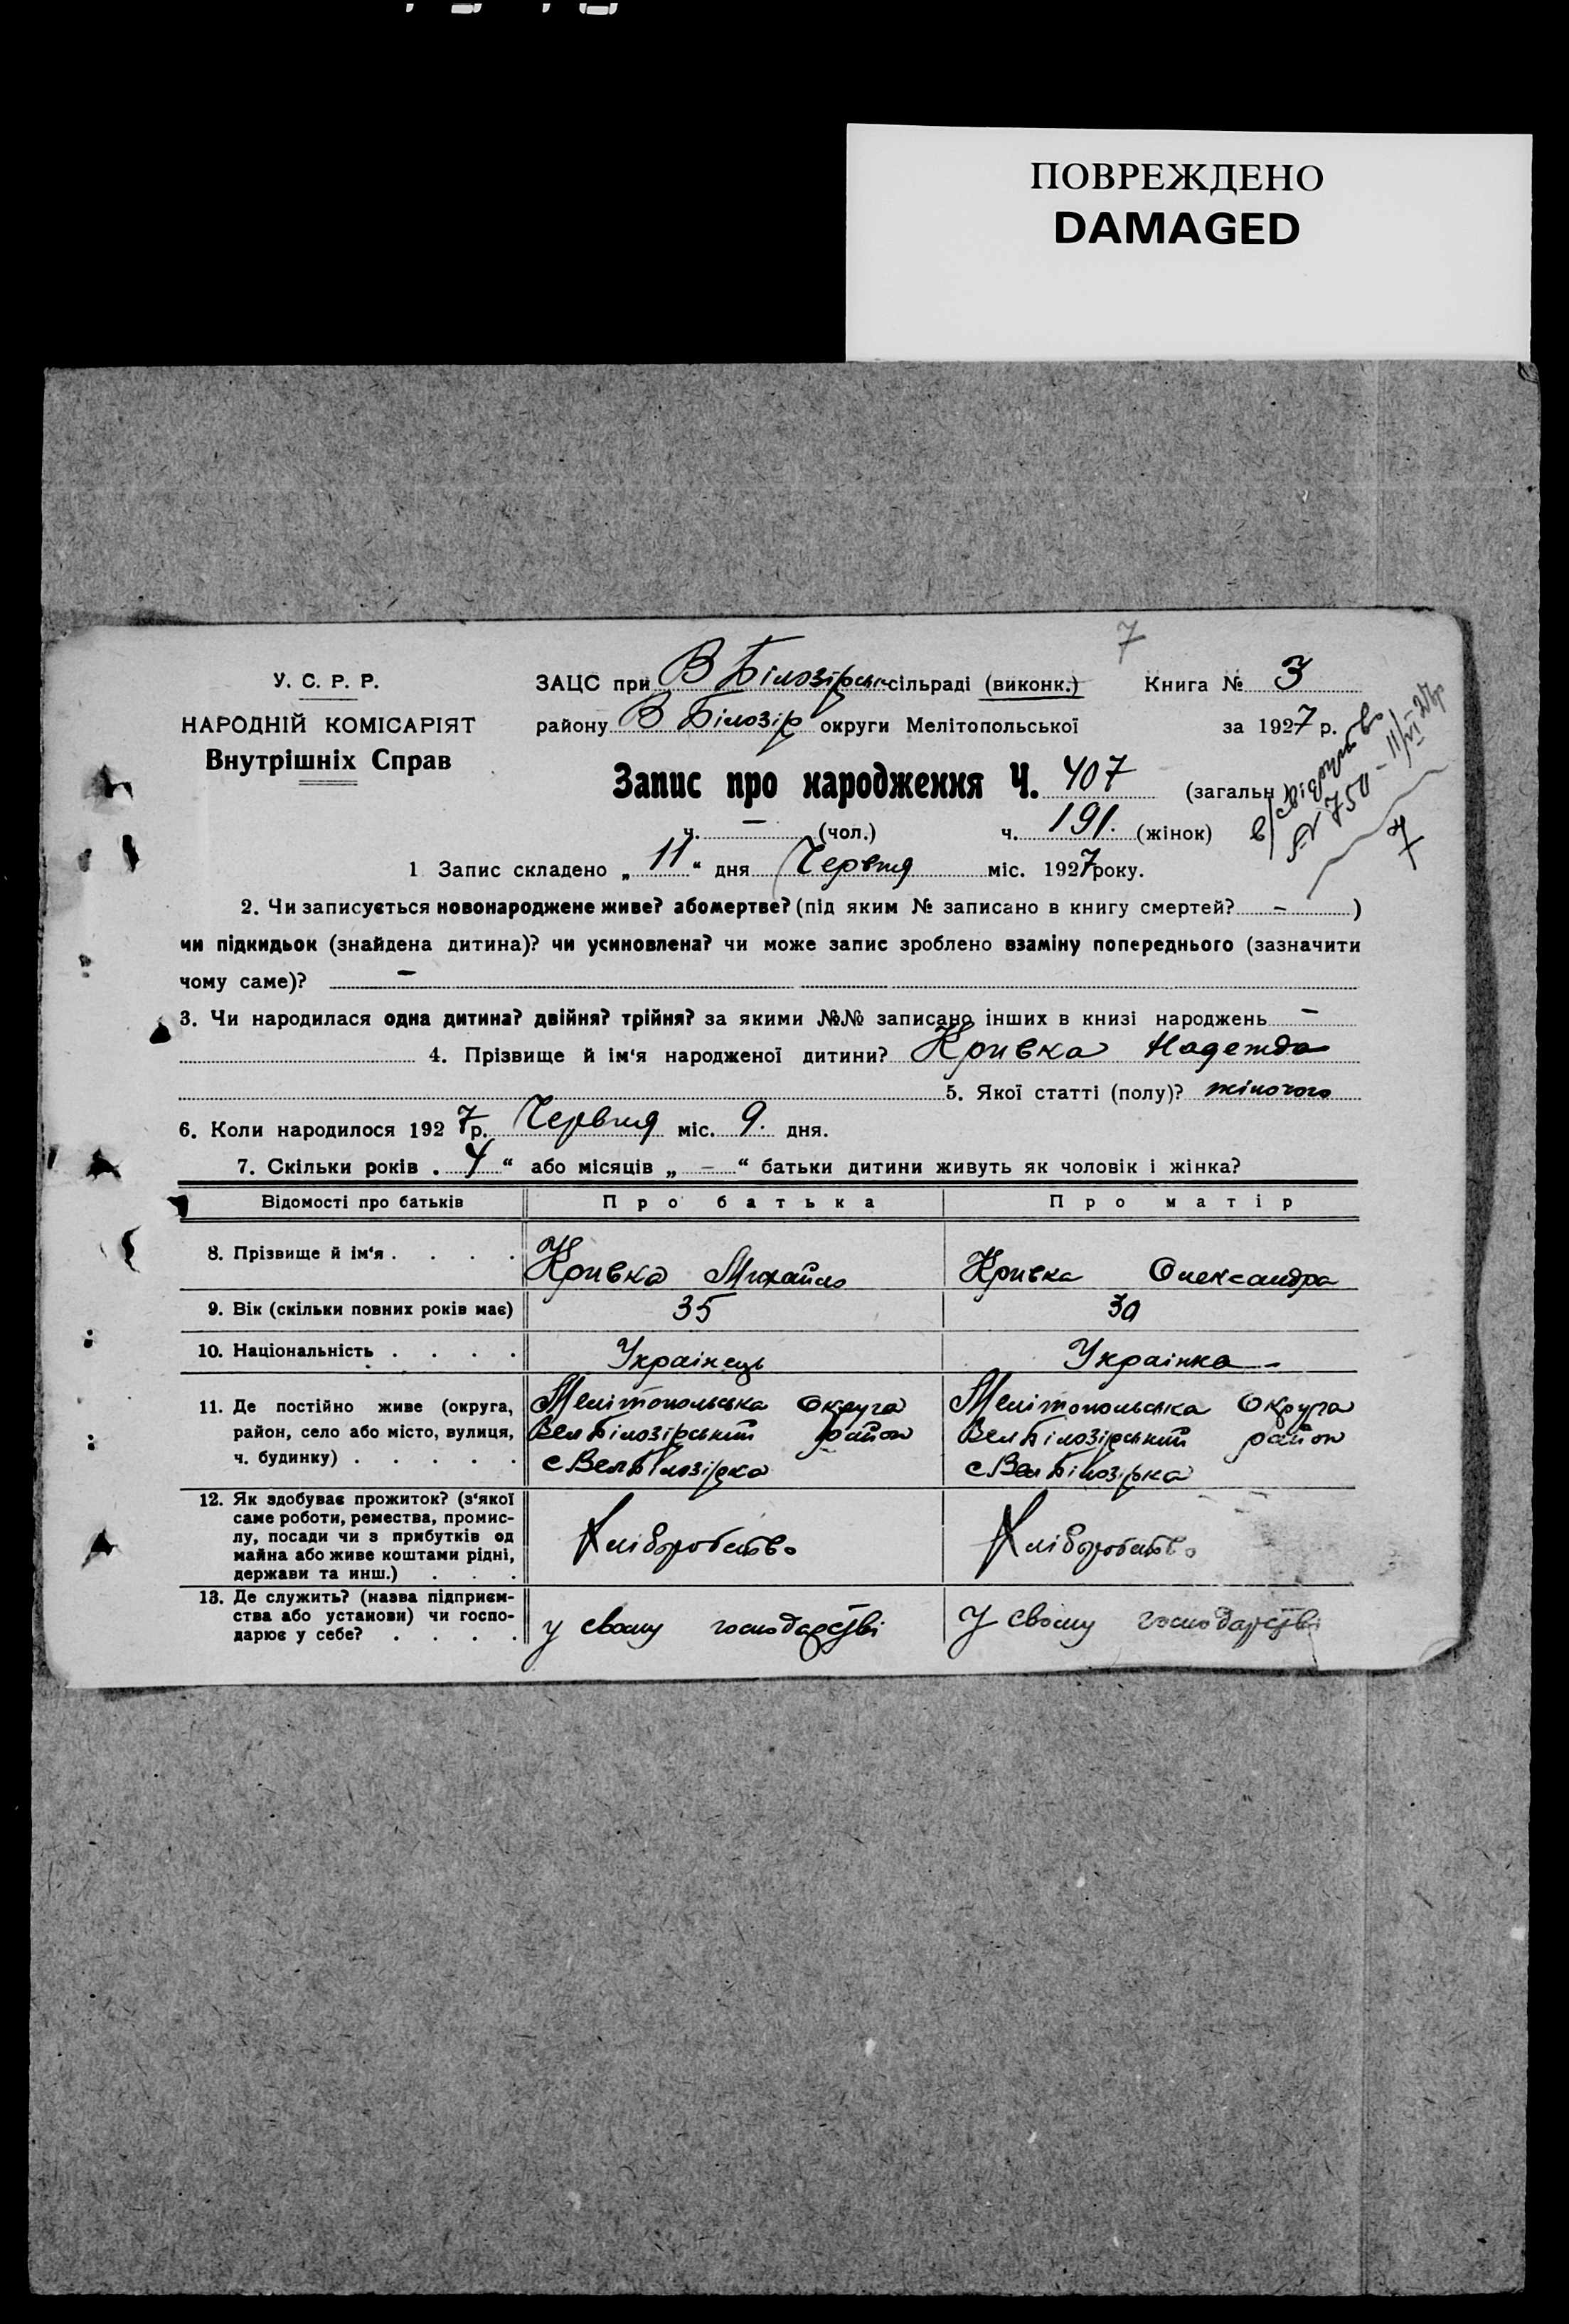 ПОВРЕЖДЕНО
DAMAGED
7
У. С. Р. Р.
НАРОДНІЙ КОМІСАРІЯТ
Внутрішніх Справ
ЗАЦС при В Білозірськ сільраді (виконк.) Книга № 3
району В Білозір округи Мелітопольської за 1927 р.
Запис про народження Ч. 407 (загальн.)
ч. – (чол.) ч. 191. (жінок)
№ 750 – 11/VI–27р
7
1 Запис складено „ 11 “ дня Червня міс. 1927 року.
2. Чи записується новонароджене живе? або мертве? (під яким № записано в книгу смертей? – )
чи підкидьок (знайдена дитина)? чи усиновлена? чи може запис зроблено взаміну попереднього (зазначити
чому саме)? –
3. Чи народилася одна дитина? двійня? трійня? за якими №№ записано інших в книзі народжень –
4. Прізвище й ім‘я народженої дитини? Кривка Надежда
5. Якої статті (полу)? жіночого
6. Коли народилося 1927 р. Червня міс. 9. дня.
7. Скільки років . 4 “ або місяців „ – “ батьки дитини живуть як чоловік і жінка?
Відомості про батьків Про батька Про матір
8. Прізвище й ім‘я . . . . Кривка Михайло Кривка Олександра
9. Вік (скільки повних років має) 35 30
10. Національність . . . . Украінець Украінка –
11. Де постійно живе (округа, Мелітопольська Округа Мелітопольська Округа
район, село або місто, вулиця, Вел Білозірський район Вел Білозірський район
ч. будинку) . . . . . с Вел Білозірка с Вел Білозірка
12. Як здобуває прожиток? (з‘якої
саме роботи, ремества, промис-
лу, посади чи з прибутків од Хліборобство Хліборобство
майна або живе коштами рідні,
держави та инш.) . . .
13. Де служить? (назва підприєм-
ства або установи) чи госпо- у свому господарстві У свому господарстві
дарює у себе? . . . .